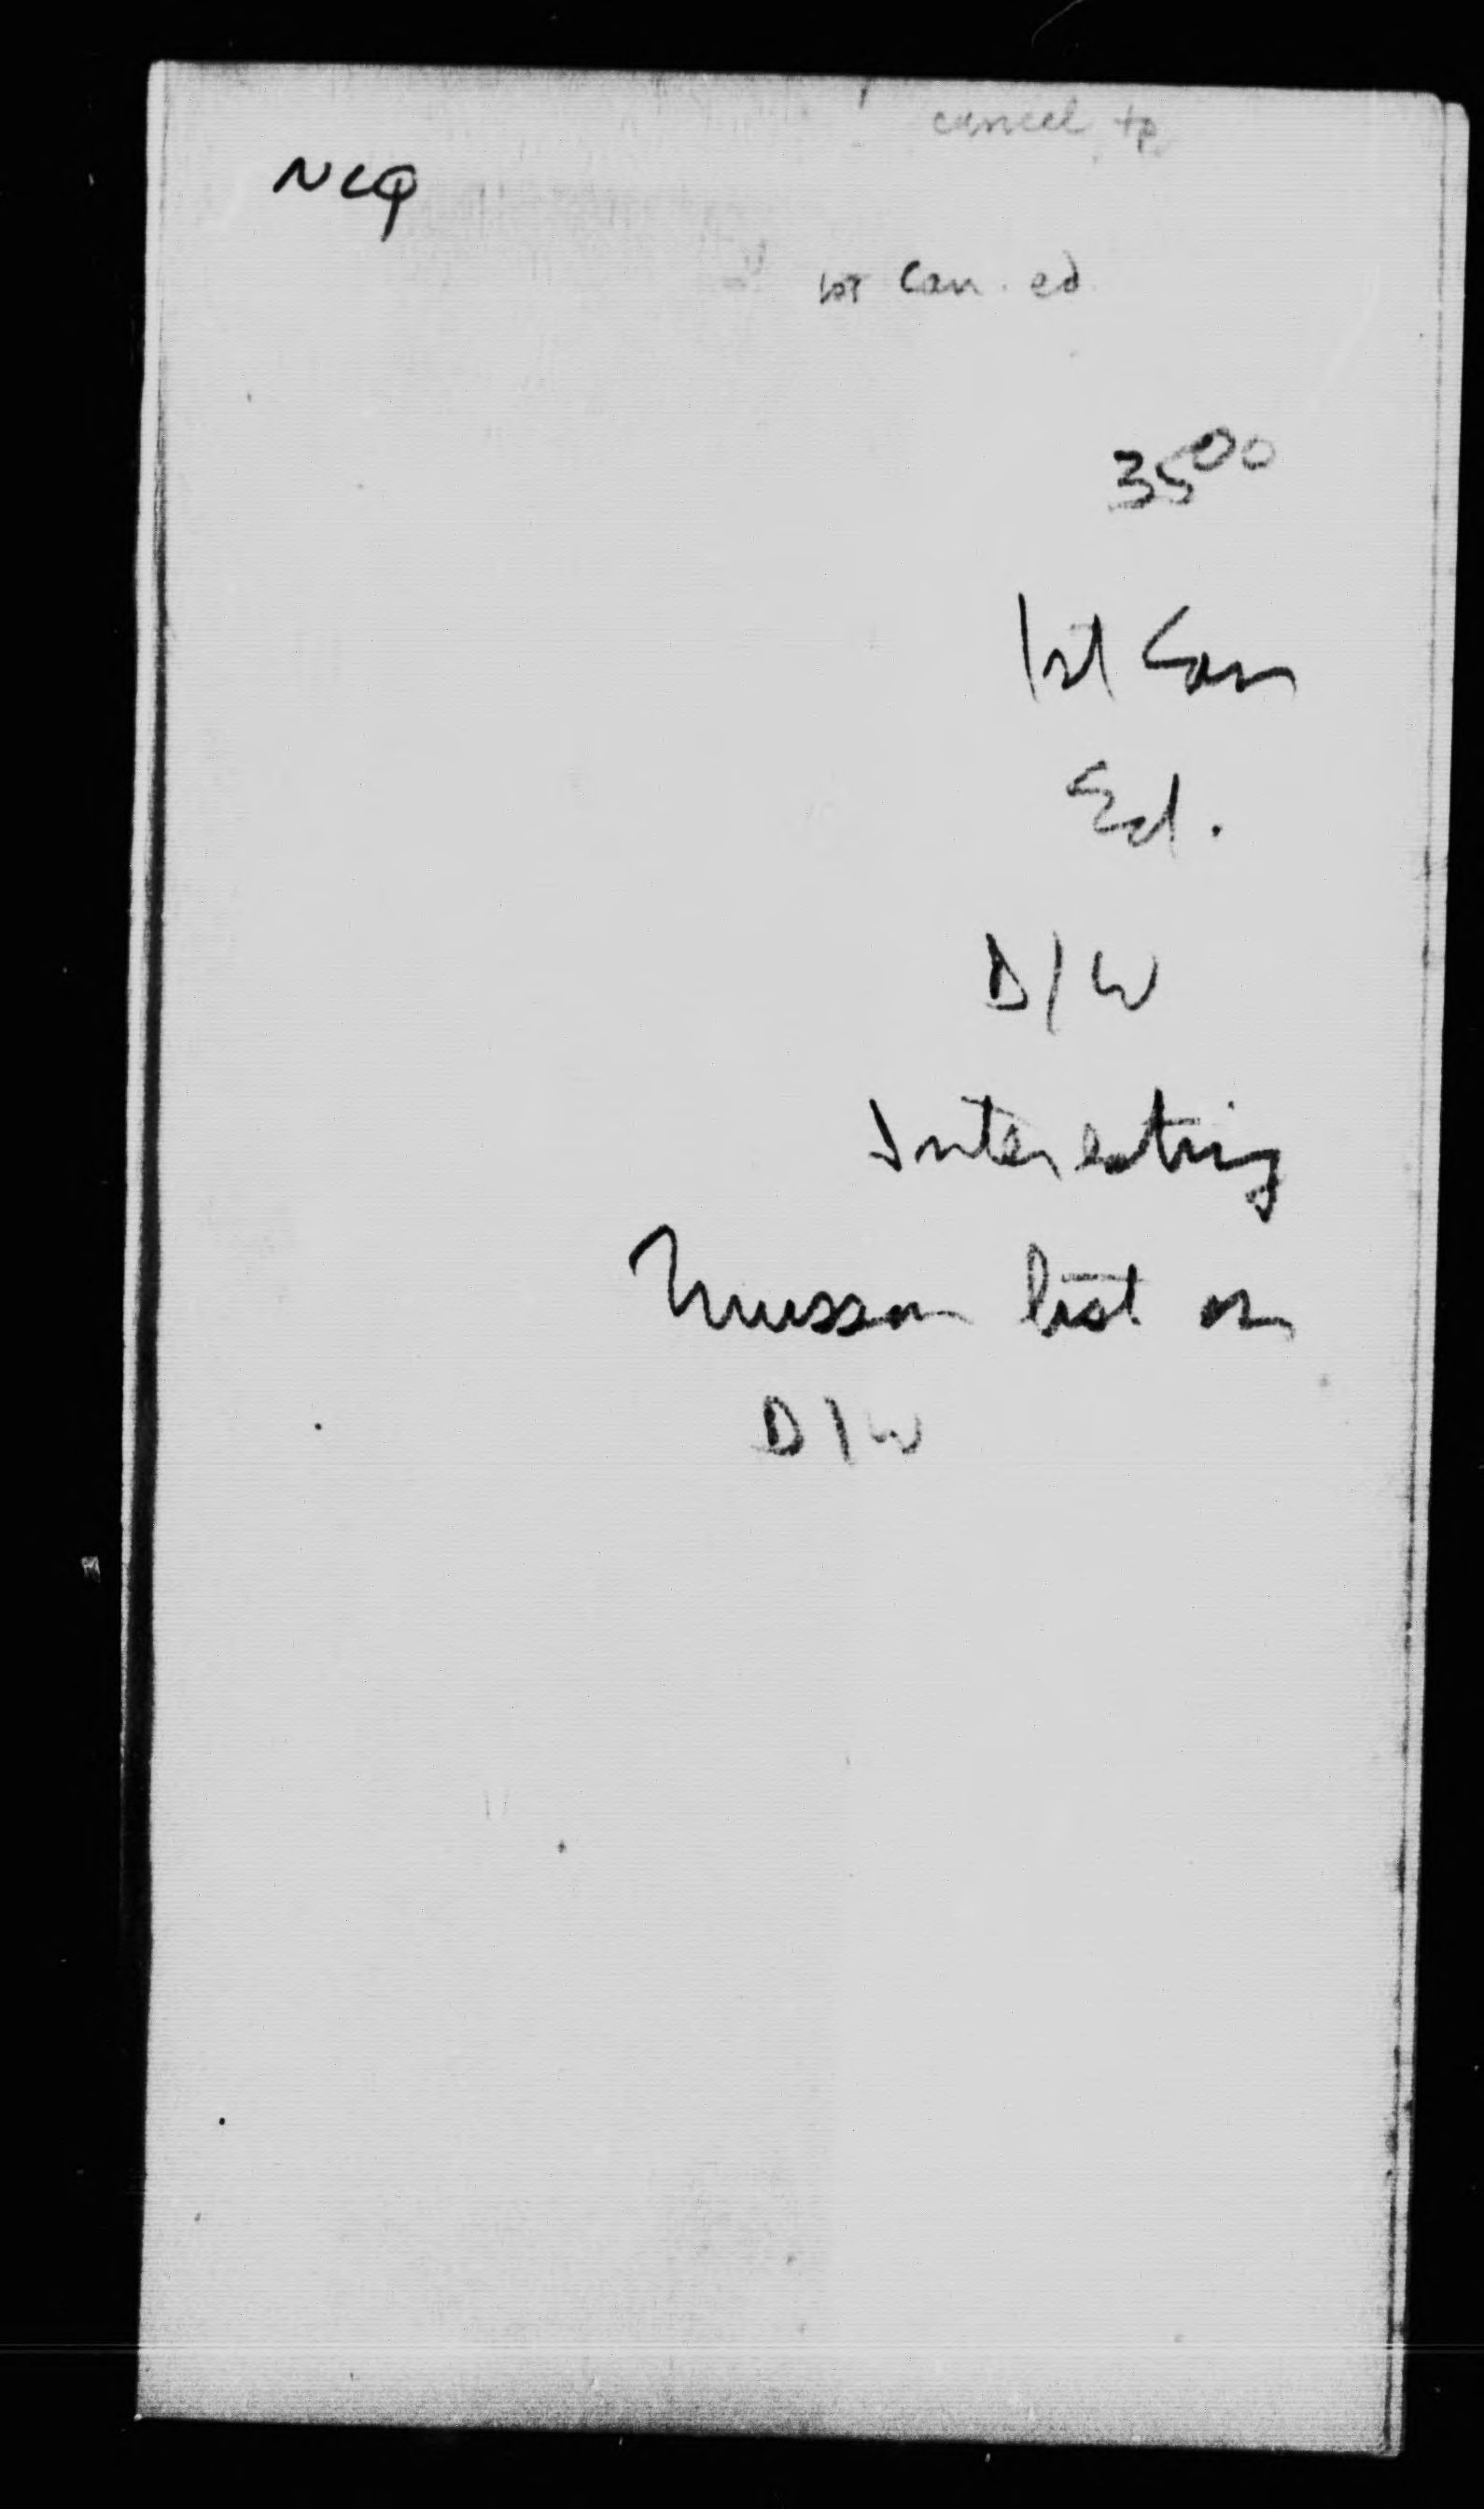 cancel tp
NCQ
1st Can. ed.
35 00
1st Can
Ed.
D/W
Interesting
Musson list on
D/W